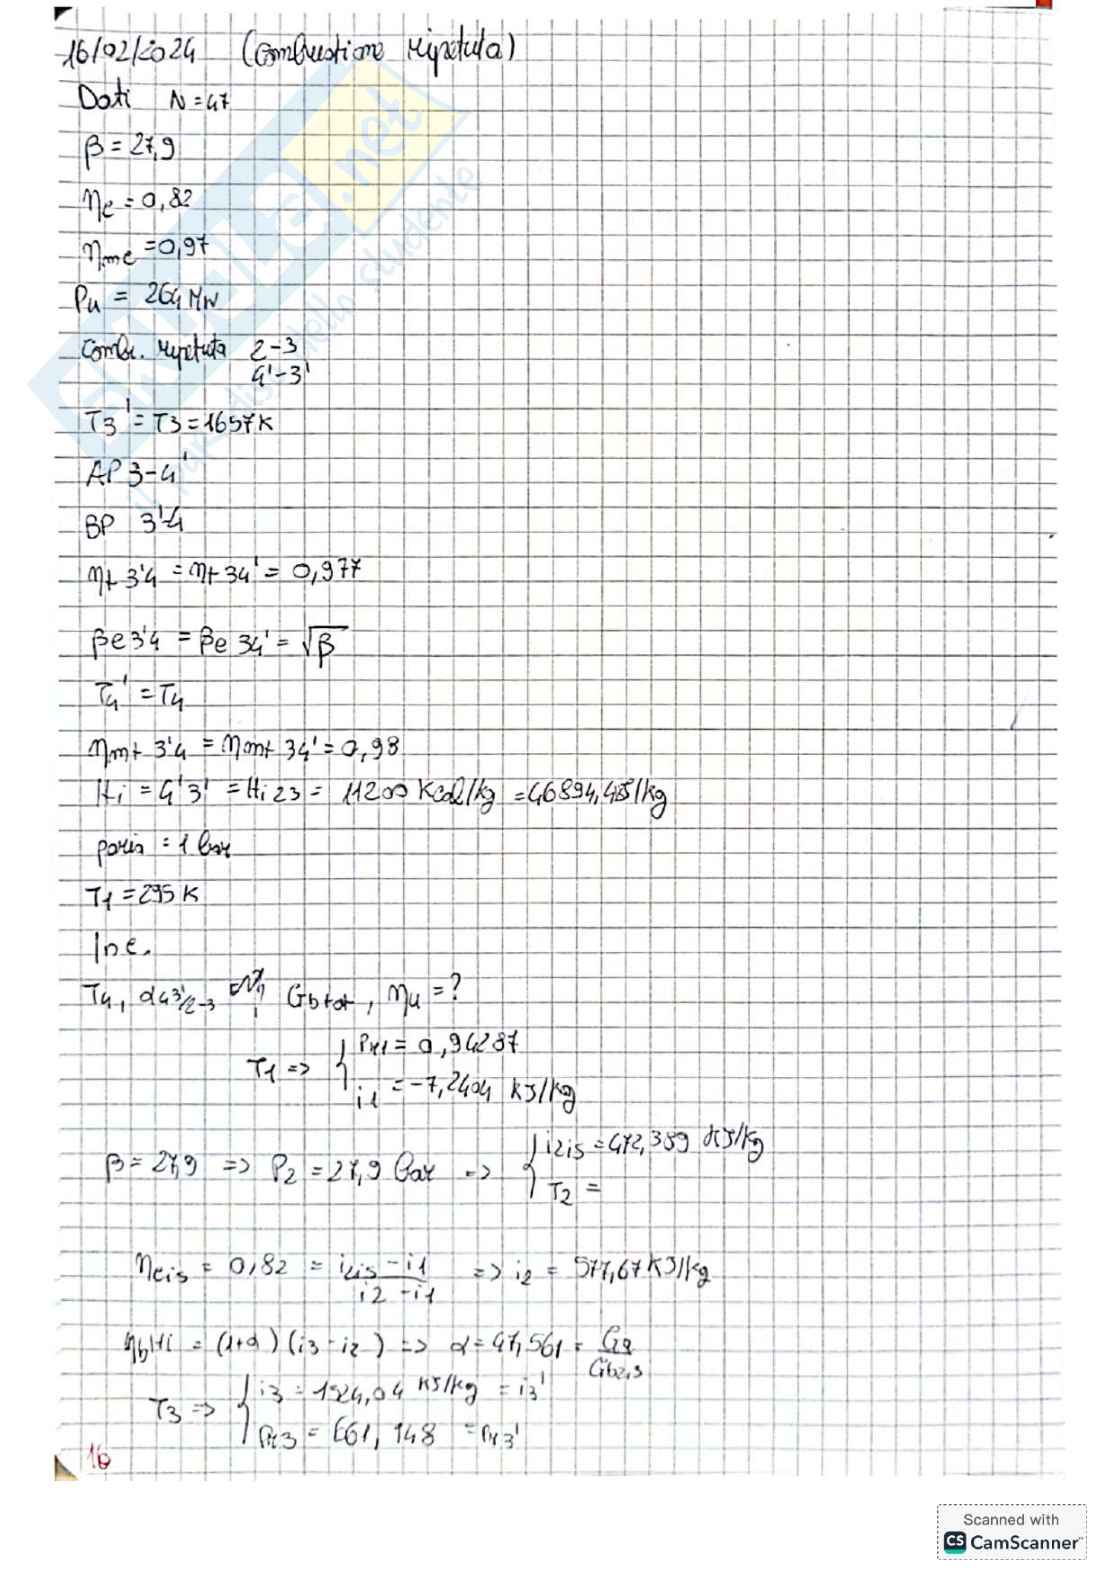 16/02/2024 (Combustione ripetuta)
Dati N=47
β = 27,9
ηc = 0,82
ηmc = 0,97
Pu = 264 MW
Comb. ripetuta 2-3
4'-3'
T3' = T3 = 1657K
AP 3-4'
BP 3'4
ηt 3'4 = ηt 34' = 0,977
βe 3'4 = βe 34' = √β
T4' = T4
ηmt 3'4 = ηmt 34' = 0,98
Hi = 4'3' = Hi 23 = 11200 Kcal/kg = 46894,4 KJ/kg
paria = 1 bar
T1 = 295 K
Inc.
T4, α43'/2-3 Gb tot, ηu = ?
T1 => { Pr1 = 0,94287
i1 = -7,2404 KJ/kg
β = 27,9 => P2 = 27,9 bar => { i2is = 472,389 KJ/kg
T2 =
ηcis = 0,82 = i2is - i1 / i2 - i1 => i2 = 577,67 KJ/kg
ηb Hi = (1+α) (i3 - i2) => α = 47,561 = Ga / Gb2,3
T3 => { i3 = 1524,04 KJ/kg = i3'
Pr3 = 661,148 = Pr3'
16
SKUOLA.net
Scanned with
CS CamScanner